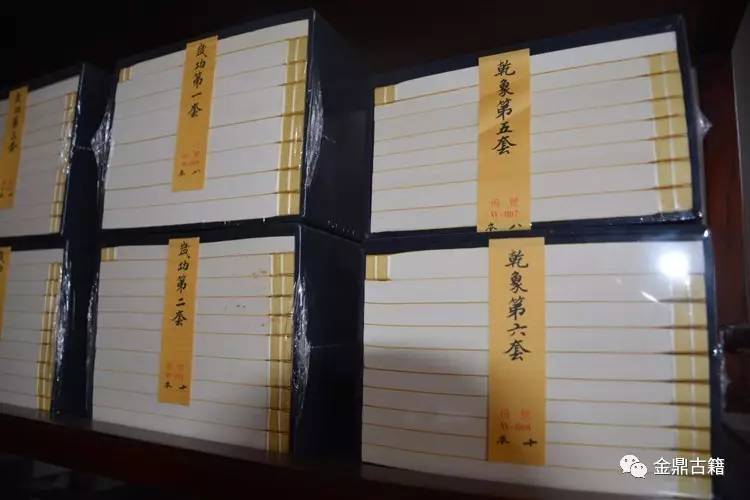 歲功第一套
八本
乾象第五套
W-007
八本
歲功第二套
十本
乾象第六套
W-008
十本
金鼎古籍